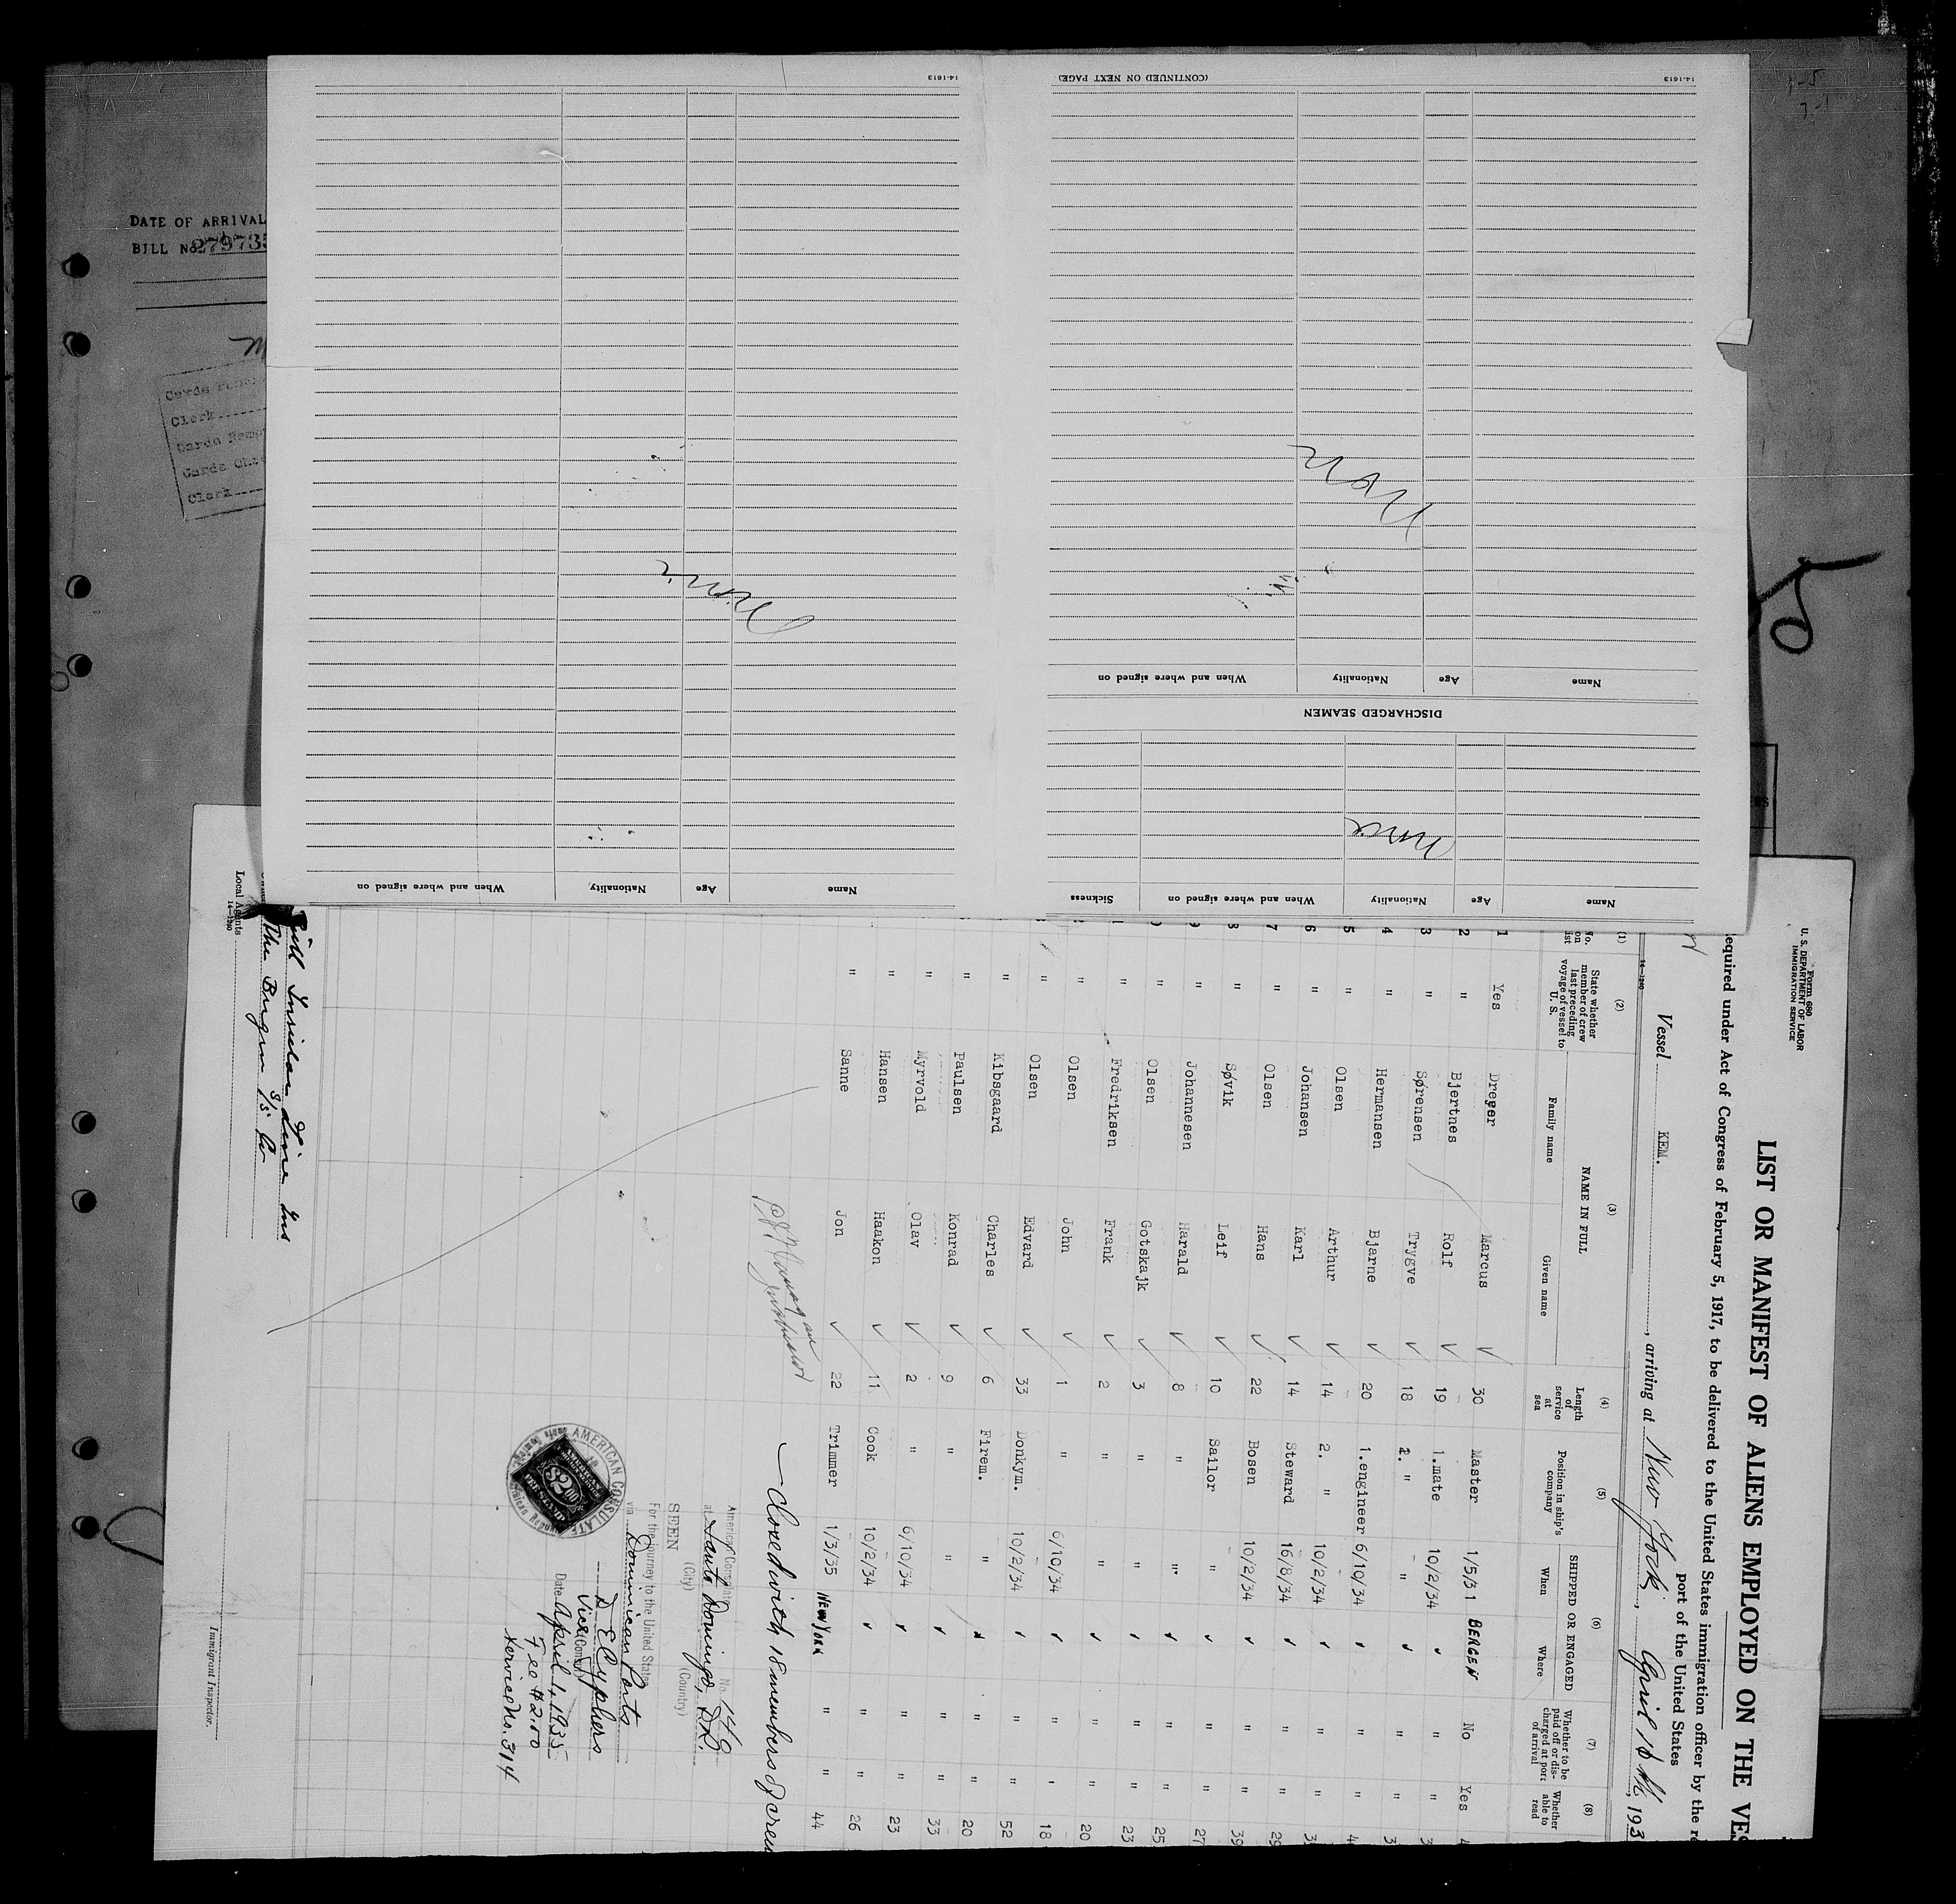 DATE OF ARRIVAL
BILL No. 27973
Clerk
Clerk
14-1613
(CONTINUED ON NEXT PAGE)
14-1613
Name Age Nationality When and where signed on Sickness
None
DISCHARGED SEAMEN
Name Age Nationality When and where signed on
Non
Name Age Nationality When and where signed on
None
Form 680
U. S. DEPARTMENT OF LABOR
IMMIGRATION SERVICE
LIST OR MANIFEST OF ALIENS EMPLOYED ON THE VES
equired under Act of Congress of February 5, 1917, to be delivered to the United States immigration officer by the re
port of the United States
Vessel KEM. , arriving at New York , April 18 th, 193
14-1240
(1) (2) (3) (4) (5) (6) (7) (8)
No. on list
State whether member of crew last preceding voyage of vessel to U. S.
NAME IN FULL
Family name Given name
Length of service at sea
Position in ship's company
SHIPPED OR ENGAGED
When Where
Whether to be paid off or discharged at port of arrival
Whether able to read
1 Yes Dreyer Marcus 30 Master 1/5/31 BERGEN No Yes 4
2 " Bjertnes Rolf 19 1.mate 10/2/34 " " 3
3 " Sørensen Trygve 18 2. " " " " 3
4 " Hermansen Bjarne 20 1.engineer 6/10/34 " " 4
5 " Olsen Arthur 14 2. " 10/2/34 " " 3
6 " Johansen Karl 14 Steward 16/8/34 " " 29
7 " Olsen Hans 22 Bosen 10/2/34 " " 39
8 " Søvik Leif 10 Sailor " " " 27
9 " Johannesen Harald 8 " " " " 25
" Olsen Gotskalk 3 " " " " 23
" Fredriksen Frank 2 " " " " 20
" Olsen John 1 " 6/10/34 " " 18
" Olsen Edvard 33 Donkym. 10/2/34 " " 52
" Kibsgaard Charles 6 Firem. " " " 20
" Paulsen Konrad 9 " " " " 33
" Myrvold Olav 2 " 6/10/34 " " 23
" Hansen Haakon 11 Cook 10/2/34 " " 26
" Sanne Jon 22 Trimmer 1/3/35 NEW YORK " " 44
Closed with 18 members of crew
American Consulate No. 149
at Santo Domingo, D.R.
(City) (Country)
SEEN
For the journey to the United States
via Dominican Ports
D E Cyphers
Vice Consul
Date April 1, 1935
Fee $2.00
Service No. 314
AMERICAN CONSULATE
$2.00
Bull Insular Line Inc
The Bergen S/S Co
Local Agents
14-1240
Immigrant Inspector.